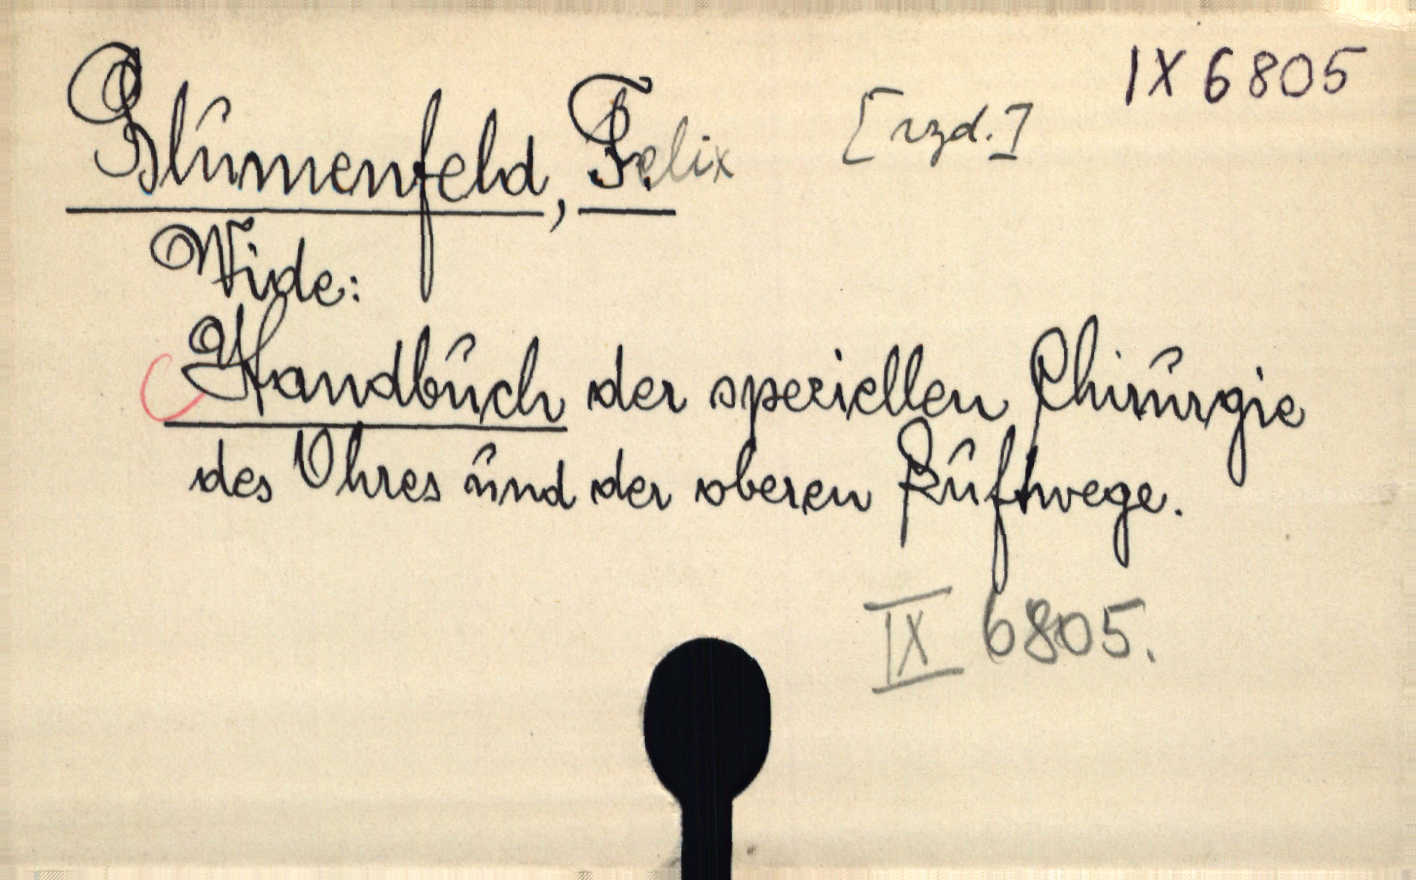 IX 6805
Blumenfeld, Felix [rzd.]
Vide:
Handbuch der speziellen Chirurgie
des Ohres und der oberen Luftwege.
IX 6805.